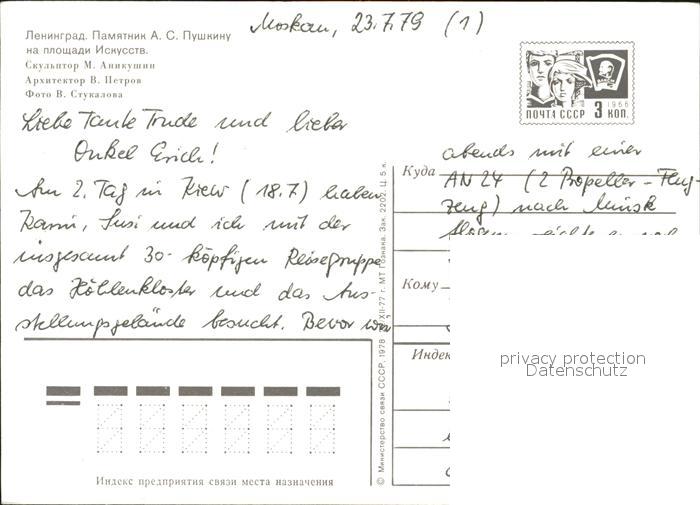 Moskau, 23.7.79 (1)
Ленинград. Памятник А. С. Пушкину
на площади Искусств.
Скульптор М. Аникушин
Архитектор В. Петров
Фото В. Стукалова
ПОЧТА СССР 3 КОП.
1966
Liebe Tante Trude und lieber
Onkel Erich!
Am 2. Tag in Kiew (18.7) haben
Karin, Susi und ich mit der
insgesamt 30-köpfigen Reisegruppe
das Höhlenkloster und das Aus-
stellungsgelände besucht. Bevor wir
abends mit einer
AN 24 (2 Propeller-Flug-
zeug) nach Minsk
Куда
Кому
Индекс
privacy protection
Datenschutz
© Министерство связи СССР, 1978
XII-77 г. МТ Гознака. Зак. 2202. Ц. 5 к.
Индекс предприятия связи места назначения